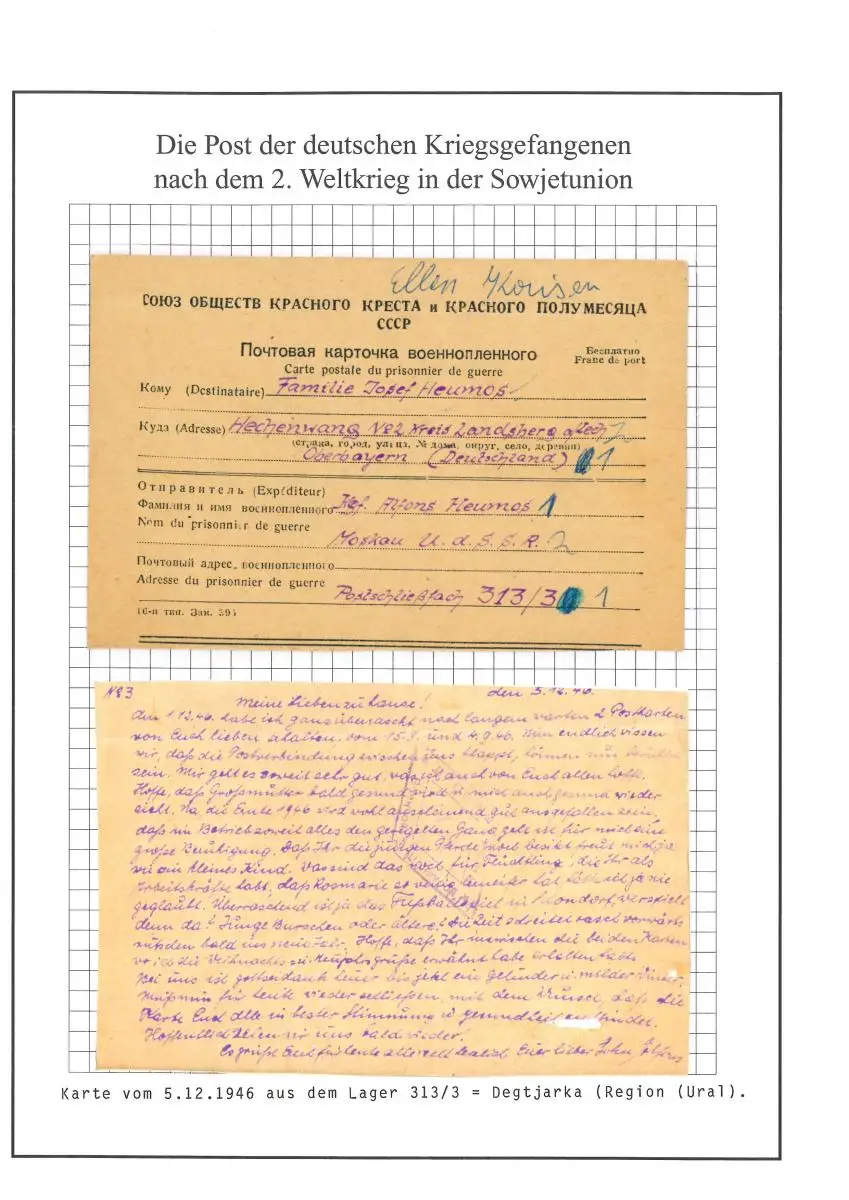 Die Post der deutschen Kriegsgefangenen
nach dem 2. Weltkrieg in der Sowjetunion
Ellen
СОЮЗ ОБЩЕСТВ КРАСНОГО КРЕСТА и КРАСНОГО ПОЛУМЕСЯЦА
СССР
Почтовая карточка военнопленного
Бесплатно
Carte postale du prisonnier de guerre
Franc de port
Кому (Destinataire) Familie Josef Heumos
Куда (Adresse) Hechenwang №2 Kreis Landsberg a/Lech 2
(страна, город, улица, № дома, округ, село, деревня)
Oberbayern (Deutschland) 1
Отправитель (Expéditeur)
Фамилия и имя военнопленного Kgf. Alfons Heumos 1
Nom du prisonnier de guerre
Moskau U.d.S.S.R. 2
Почтовый адрес военнопленного
Adresse du prisonnier de guerre
Postschließfach 313/3 1
16-я тип. Зак. 395
№3 den 5.12.46.
Meine Lieben zu hause!
Am 1.12.46. habe ich ganz überascht nach langem warten 2 Postkarten
von Euch lieben erhalten, vom 15.8. und 4.9.46. Nun endlich wissen
wir, daß die Postverbindung zwischen uns klappt, können nun
sein. Mir geht es soweit sehr gut, was ich auch von Euch allen hoffe.
Hoffe, daß Großmutter bald gesund wird u. mich auch gesund wieder
sieht. Na die Ernte 1946 wird wohl anscheinend gut ausgefallen sein,
daß im Betrieb soweit alles den geregelten Gang geht ist für mich eine
große Beruhigung. Daß Ihr die jungen Pferde noch besitzt freut mich ja
wie ein kleines Kind. Was sind das wohl für Flüchtling, die Ihr als
Arbeitskräfte habt, daß Rosmarie so wenig hat, hätte ich ja nie
geglaubt. Überraschend ist ja das Fußballspiel in Schondorf, wer spielt
denn da? Junge Burschen oder ältere? Die Zeit schreitet rasch vorwärts
bald ins neue Jahr. Hoffe, daß Ihr inzwischen die beiden Karten
wo ich die Weihnachts u. Neujahrsgrüße erwähnt habe erhalten habt.
Bei uns ist gottseidank heuer bis jetzt ein gelinder u. milder Winter.
Muß nun für heute wieder schließen, mit dem Wunsch, daß die
Karte Euch alle in bester Stimmung u. gesundheit
Hoffentlich sehen wir uns bald wieder.
Es grüßt Euch für heute alle recht herzlich Euer lieber Sohn Alfons
Karte vom 5.12.1946 aus dem Lager 313/3 = Degtjarka (Region (Ural).